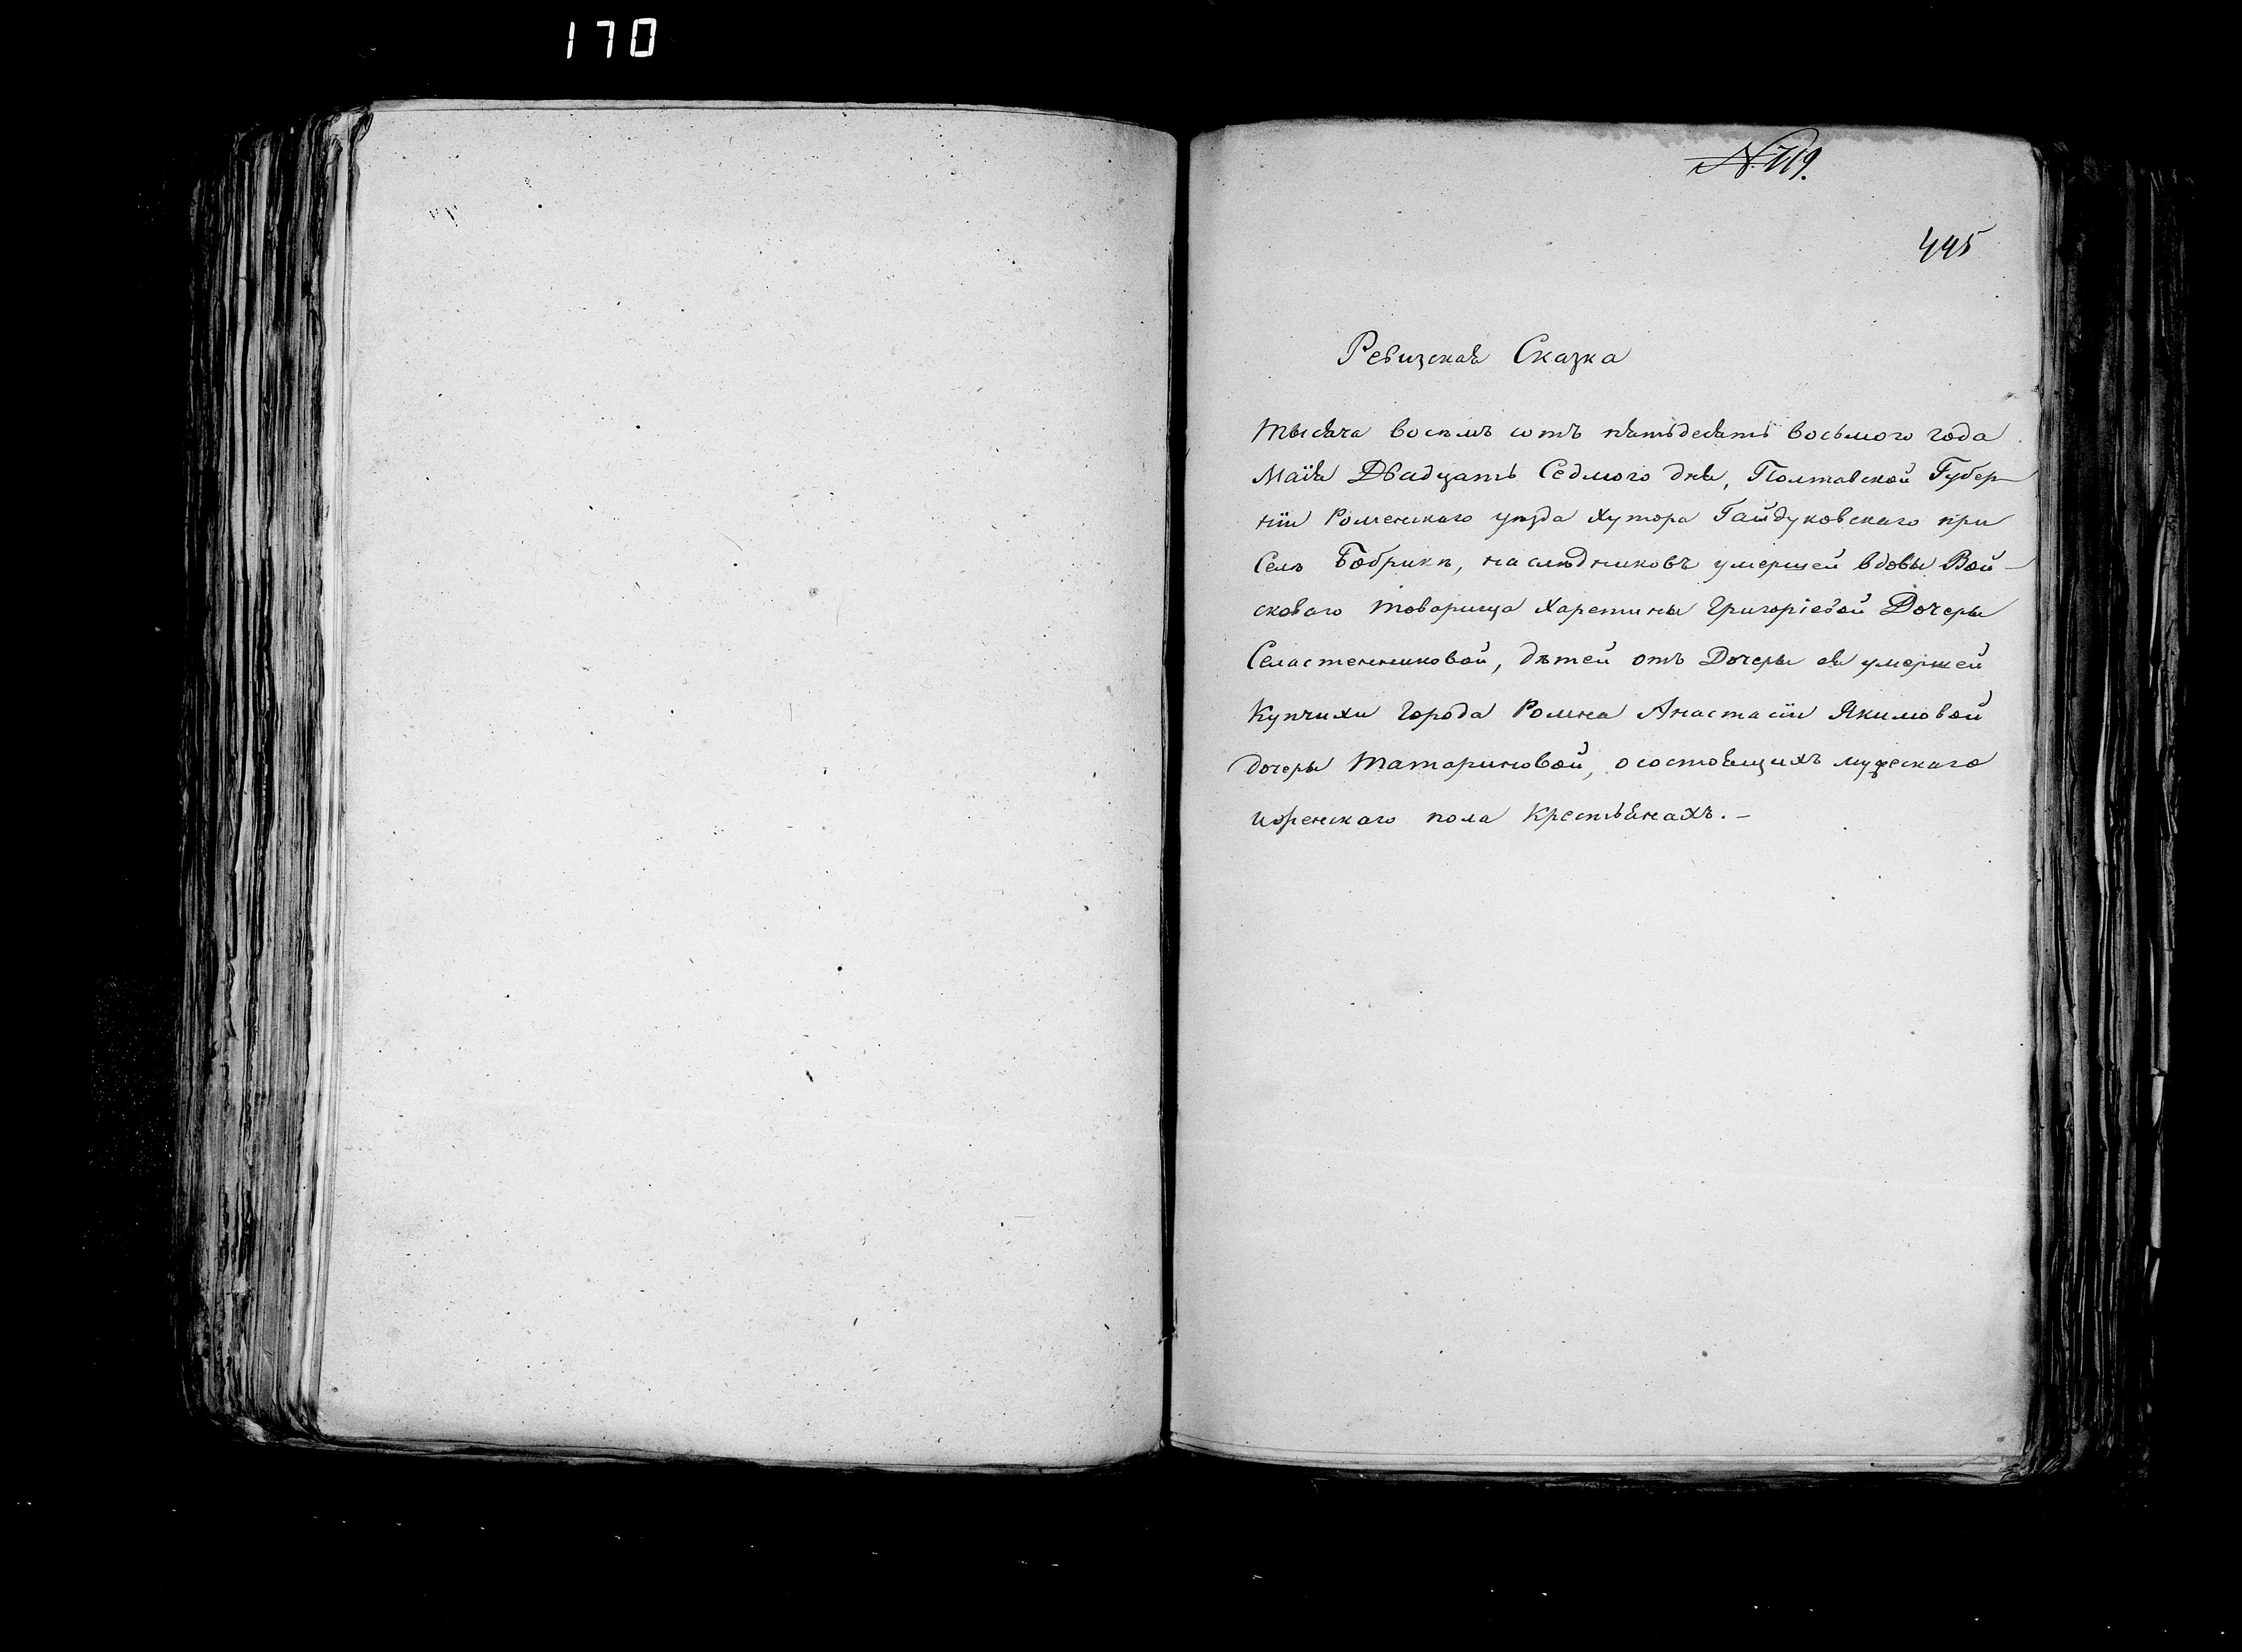 170
N. 719.
445
Ревизская Сказка
Тысяча восемъ сотъ пятьдесятъ восьмого года
Маія Двадцать Седмого дня, Полтавской Губер-
ніи Роменскаго уѣзда хутора Гайдуковскаго при
Селѣ Бобрикѣ, наслѣдниковъ умершей вдовы Вой-
скового товарища Харетины Григоріевой Дочеры
Селастенниковой, дѣтей отъ Дочеры ея умершей
Купчихи города Ромна Анастасіи Якимовой
дочеры Татариновой, о состоящихъ мужескаго
и женскаго пола крестьянахъ. -